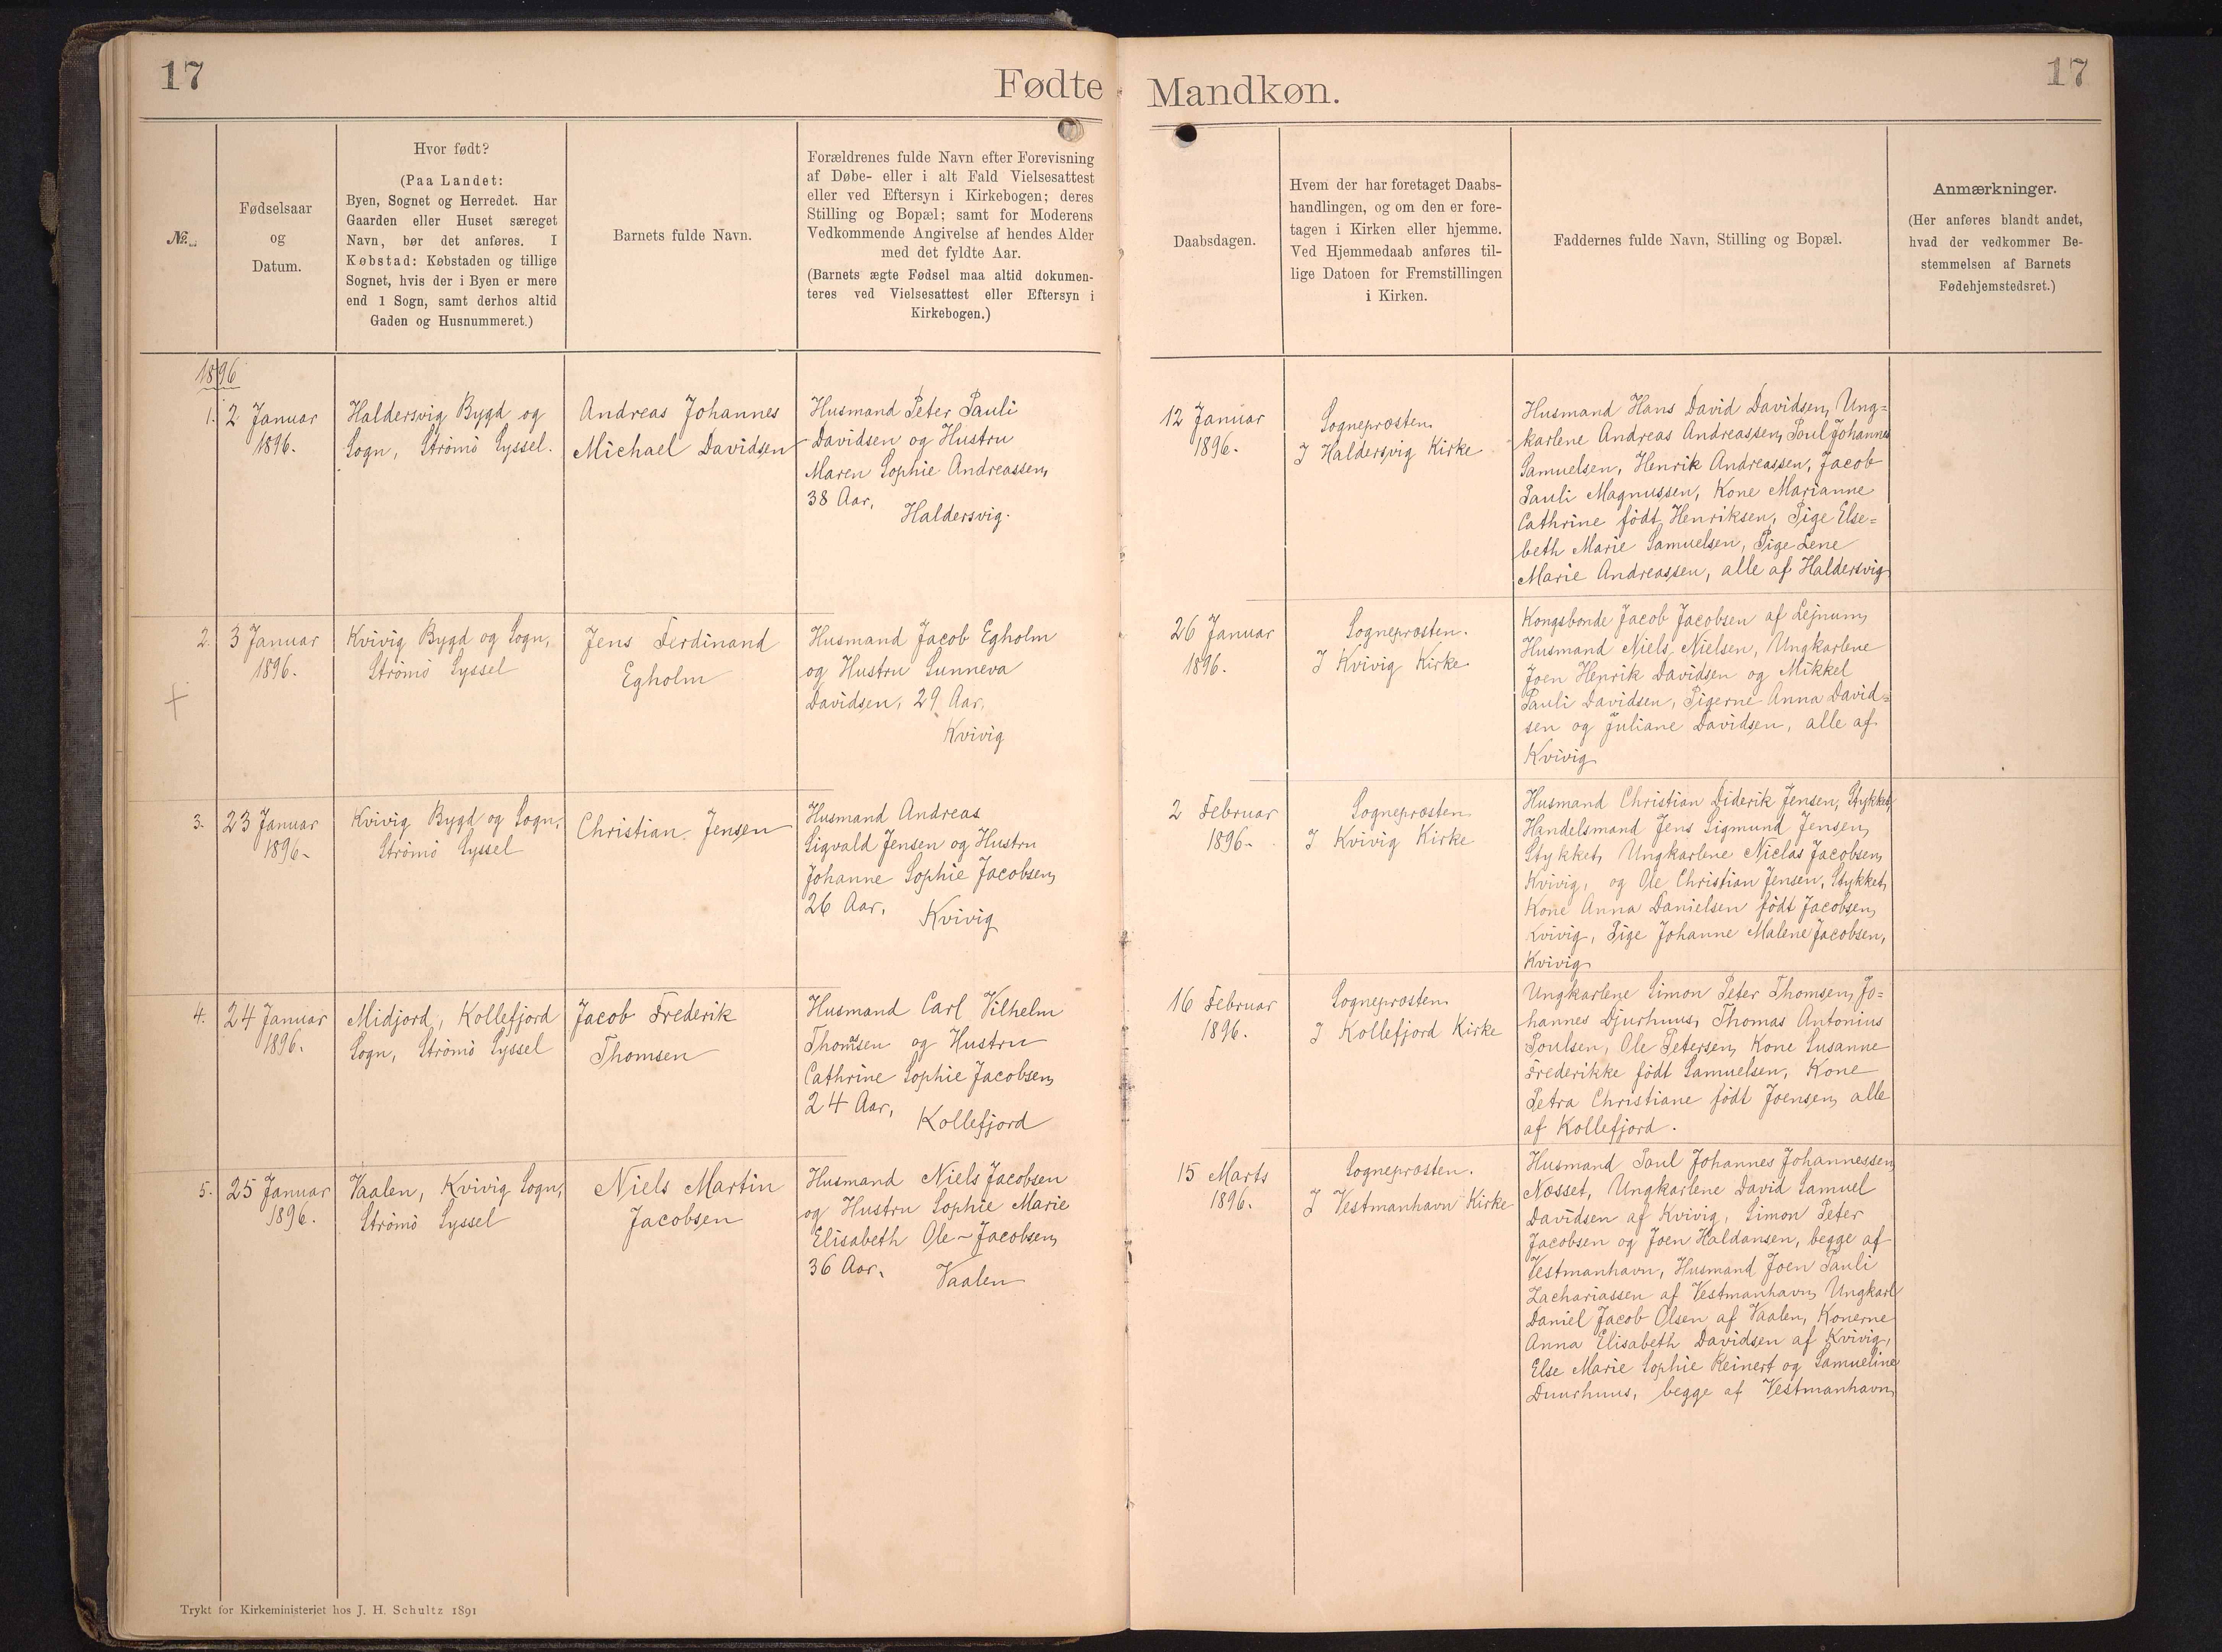 17
Fødte
Nr.
Fødselsaar
og
Datum.
Hvor født?
(Paa Landet:
Byen, Sognet og Herredet. Har
Gaarden eller Huset særeget
Navn, bør det anføres. I
Købstad: Købstaden og tillige
Sognet, hvis der i Byen er mere
end 1 Sogn, samt derhos altid
Gaden og Husnummeret.)
Barnets fulde Navn.
Forældrenes fulde Navn efter Forevisning
af Døbe- eller i alt Fald Vielsesattest
eller ved Eftersyn i Kirkebogen; deres
Stilling og Bopæl; samt for Moderens
Vedkommende Angivelse af hendes Alder
med det fyldte Aar.
(Barnets ægte Fødsel maa altid dokumen-
teres ved Vielsesattest eller Eftersyn i
Kirkebogen.)
1896
1.
2 Januar
1896.
Haldersvig Bygd og
Sogn, Strömö Syssel.
Andreas Johannes
Michael Davidsen
Husmand Peter Pauli
Davidsen og Hustru
Maren Sophie Andreassen,
38 Aar,
Haldersvig.
2.
3 Januar
1896.
Kvivig Bygd og Sogn,
Strömö Syssel
Jens Ferdinand
Egholm
Husmand Jacob Egholm
og Hustru Sunneva
Davidsen, 29 Aar,
Kvivig
3.
23 Januar
1896-
Kvivig Bygd og Sogn,
Strömö Syssel
Christian Jensen
Husmand Andreas
Sigvald Jensen og Hustru
Johanne Sophie Jacobsen,
26 Aar,
Kvivig
4.
24 Januar
1896.
Midjord, Kollefjord
Sogn, Strömö Syssel
Jacob Frederik
Thomsen
Husmand Carl Vilhelm
Thomsen og Hustru
Cathrine Sophie Jacobsen,
24 Aar,
Kollefjord
5.
25 Januar
1896.
Vaalen, Kvivig Sogn,
Strömö Syssel
Niels Martin
Jacobsen
Husmand Niels Jacobsen
og Hustru Sophie Marie
Elisabeth Ole-Jacobsen,
36 Aar,
Vaalen
Trykt for Kirkeministeriet hos J. H. Schultz 1891
Mandkøn.
17
Daabsdagen.
Hvem der har foretaget Daabs-
handlingen, og om den er fore-
tagen i Kirken eller hjemme.
Ved Hjemmedaab anføres til-
lige Datoen for Fremstillingen
i Kirken.
Faddernes fulde Navn, Stilling og Bopæl.
Anmærkninger.
(Her anføres blandt andet,
hvad der vedkommer Be-
stemmelsen af Barnets
Fødehjemstedsret.)
12 Januar
1896.
Sognepræsten.
I Haldersvig Kirke
Husmand Hans David Davidsen, Ung=
karlene Andreas Andreassen, Poul Johannes
Samuelsen, Henrik Andreassen, Jacob
Pauli Magnussen, Kone Marianne
Cathrine födt Henriksen, Pige Else=
beth Marie Samuelsen, Pige Lene
Marie Andreassen, alle af Haldersvig
26 Januar
1896.
Sognepræsten.
I Kvivig Kirke.
Kongsbonde Jacob Jacobsen af Lejnum,
Husmand Niels Nielsen, Ungkarlene
Joen Henrik Davidsen og Mikkel
Pauli Davidsen, Pigerne Anna David=
sen og Juliane Davidsen, alle af
Kvivig
2 Februar
1896-
Sognepræsten
I Kvivig Kirke
Husmand Christian Diderik Jensen, Stykket,
Handelsmand Jens Sigmund Jensen,
Stykket, Ungkarlene Niclas Jacobsen,
Kvivig, og Ole Christian Jensen, Stykket,
Kone Anna Danielsen födt Jacobsen,
Kvivig, Pige Johanne Malene Jacobsen,
Kvivig
16 Februar
1896.
Sognepræsten
I Kollefjord Kirke
Ungkarlene Simon Peter Thomsen, Jo=
hannes Djurhuus, Thomas Antonius
Poulsen, Ole Petersen, Kone Susanne
Frederikke födt Samuelsen, Kone
Petra Christiane födt Joensen, alle
af Kollefjord.
15 Marts
1896.
Sognepræsten.
I Vestmanhavn Kirke
Husmand Poul Johannes Johannessen,
Næsset, Ungkarlene David Samuel
Davidsen af Kvivig, Simon Peter
Jacobsen og Joen Haldansen, begge af
Vestmanhavn, Husmand Joen Pauli
Zachariassen af Vestmanhavn, Ungkarl
Daniel Jacob Olsen af Vaalen, Konerne
Anna Elisabeth Davidsen af Kvivig,
Else Marie Sophie Reinert og Samueline
Duurhuus, begge af Vestmanhavn,